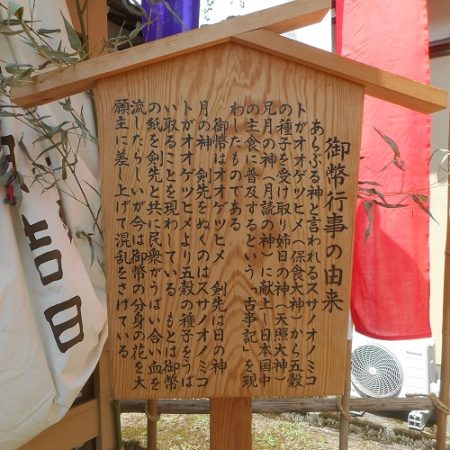 御幣行事の由来
あらぶる神と言われるスサノオノミコ
トがオオゲツヒメ(保食大神)から五穀
の種子を受け取り姉日の神(天照大神)
兄月の神(月読の神)に献上し日本国中
の主食に普及するという「古事記」を現
わしたものである
御幣はオオゲツヒメ 剣先は日の神
月の神 剣先をぬくのはスサノオノミコ
トがオオゲツヒメより五穀の種子をうば
い取ることを現わしている もとは御幣
の紙を剣先と共に民衆がうばい合い血を
流したらしいが今は御幣の分身の花を大
願主に差し上げて混乱をさけている
吉日